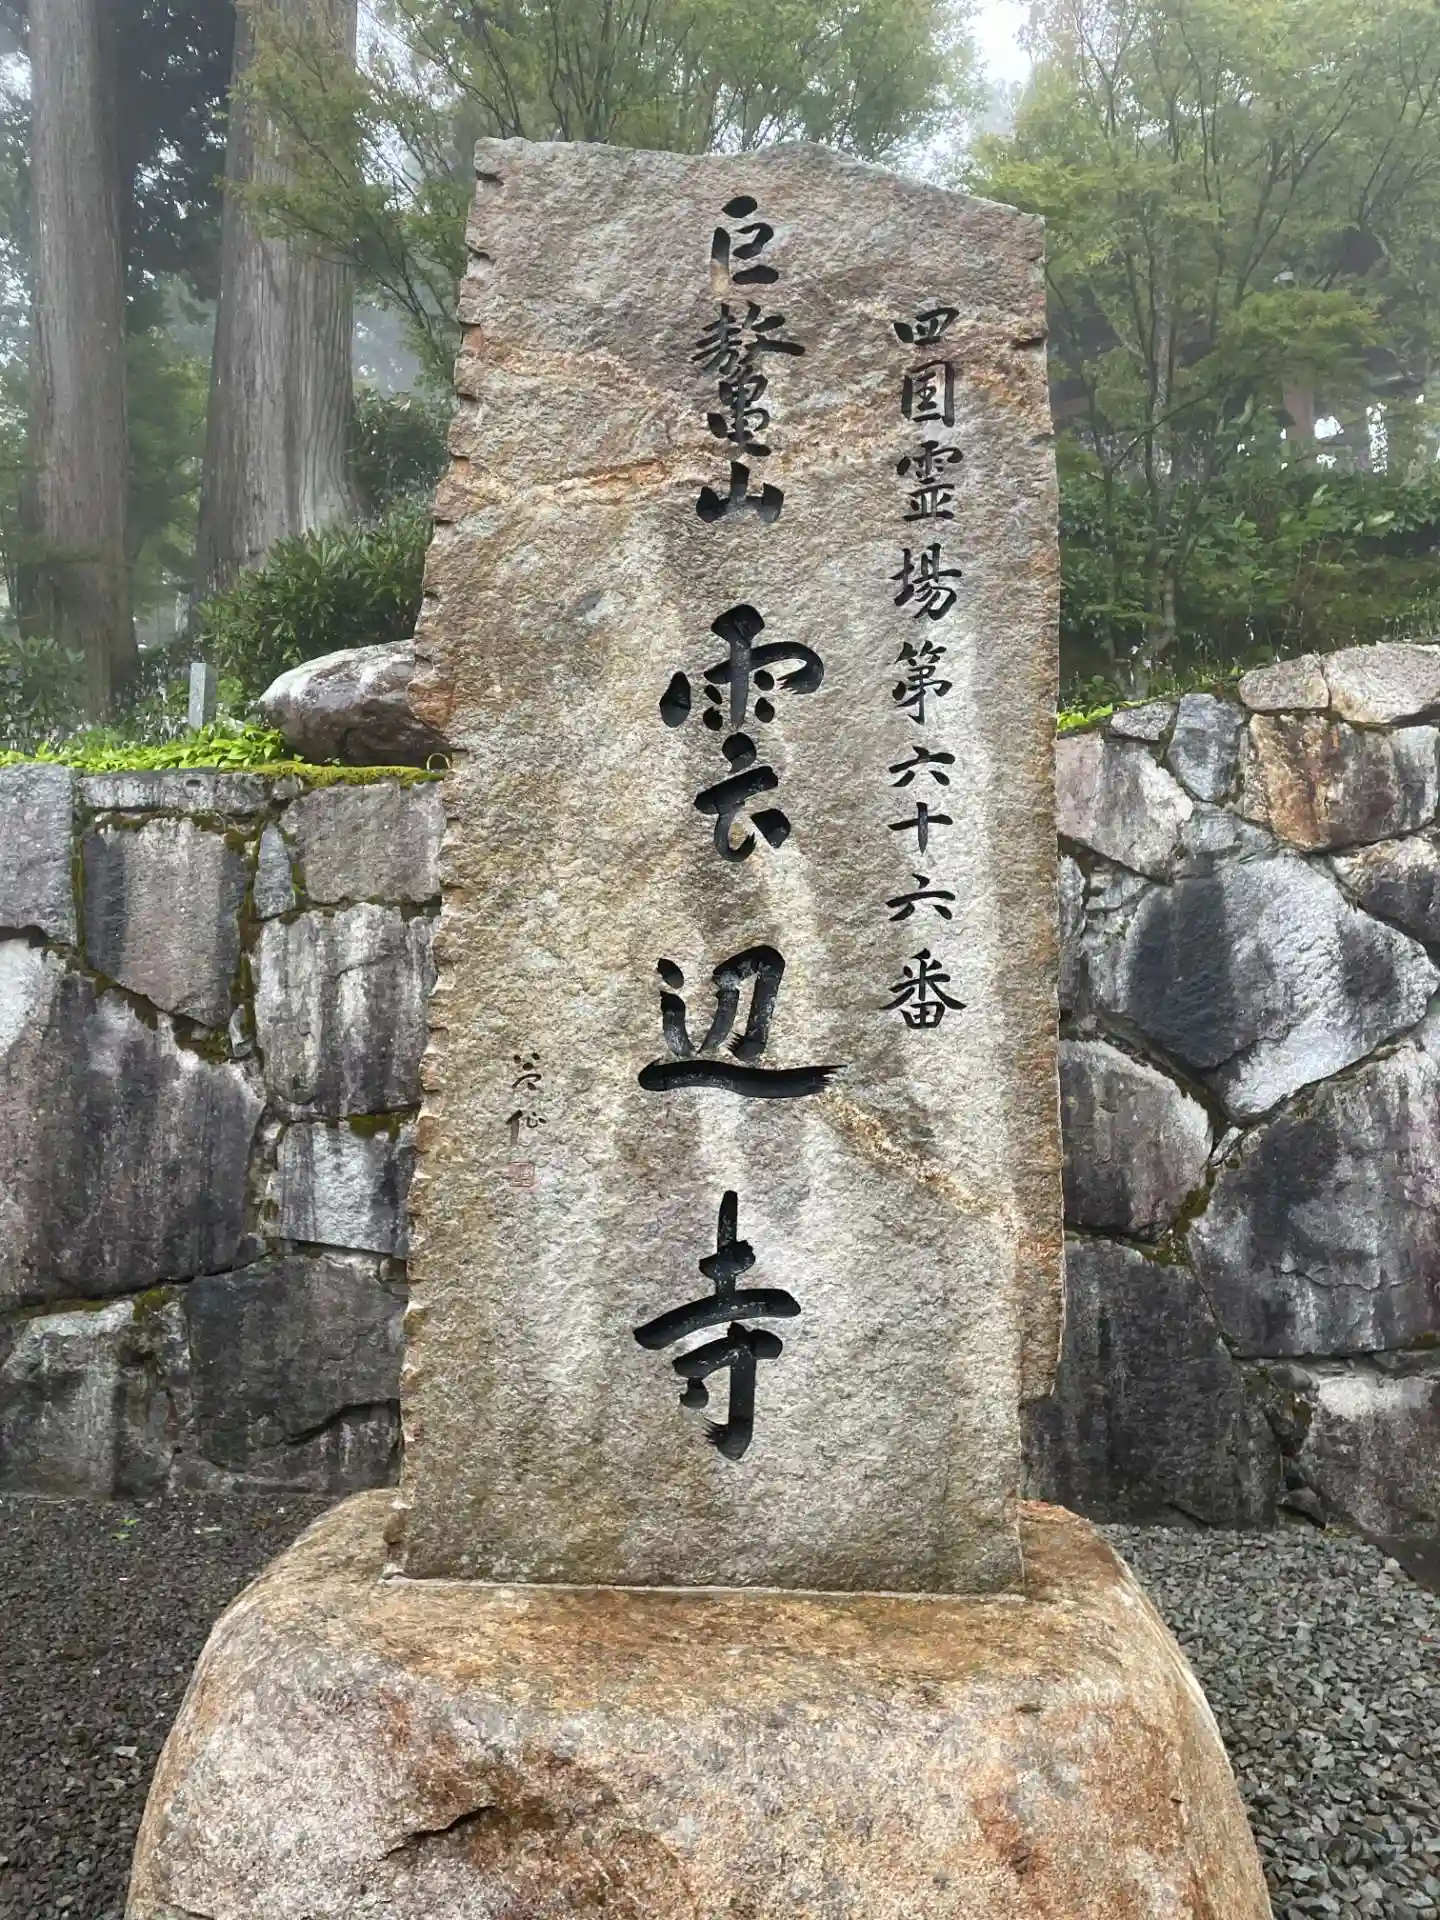 四国霊場第六十六番
巨鼇山 雲辺寺